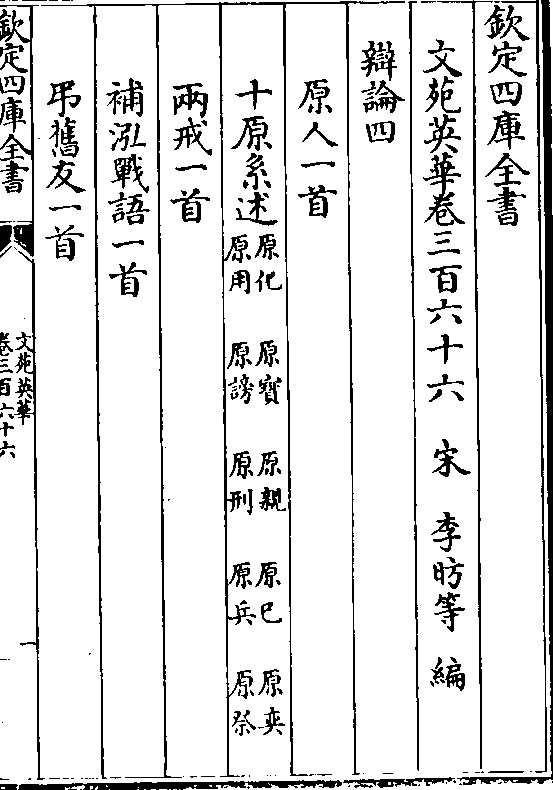 欽定四庫全書
文苑英華卷三百六十六 宋 李昉等 編
辯論四
原人一首
十原系述 原化 原寶 原親 原已 原奕
原用 原謗 原刑 原兵 原祭
兩戒一首
補泓戰語一首
弔舊友一首
欽定四庫全書
文苑英華
卷三百六十六
一